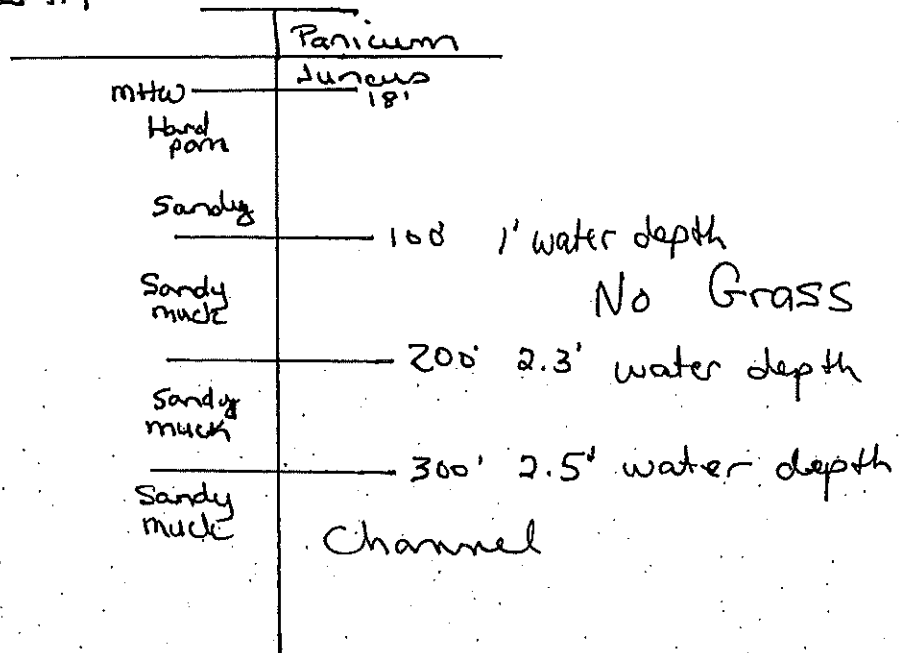 Panicum
Juncus
MHW 18'
Hard
pan
Sandy
100' 1' water depth
Sandy
muck
No Grass
200' 2.3' water depth
Sandy
muck
300' 2.5' water depth
Sandy
muck
Channel